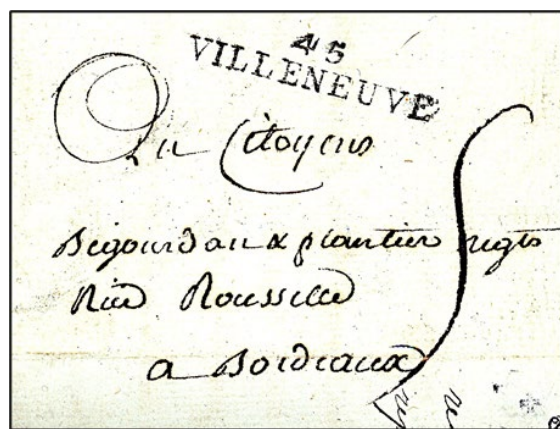 45
VILLENEUVE
Au Citoyens
Bigourdan & plantier negts
Rue Rousselle
a Bordeaux